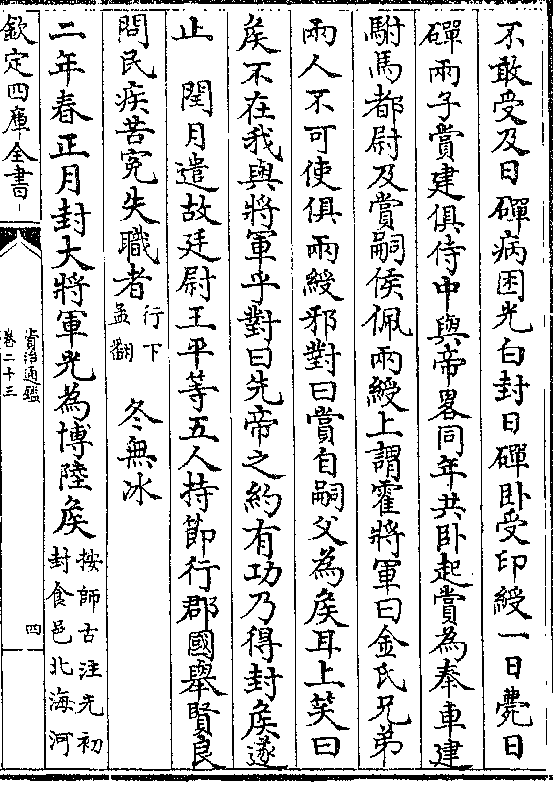 不敢受及日磾病困光白封日磾卧受印綬一日薨日
磾兩子賞建俱侍中與帝畧同年共卧起賞為奉車建
駙馬都尉及賞嗣侯佩兩綬上謂霍將軍曰金氏兄弟
兩人不可使俱兩綬邪對曰賞自嗣父為侯耳上笑曰
侯不在我與將軍乎對曰先帝之約有功乃得封侯遂
止　閏月遣故廷尉王平等五人持節行郡國舉賢良
問民疾苦寃失職者行下孟翻　冬無冰
二年春正月封大將軍光為博陸侯按師古注光初封食邑北海河
欽定四庫全書
資治通鑑
卷二十三
四